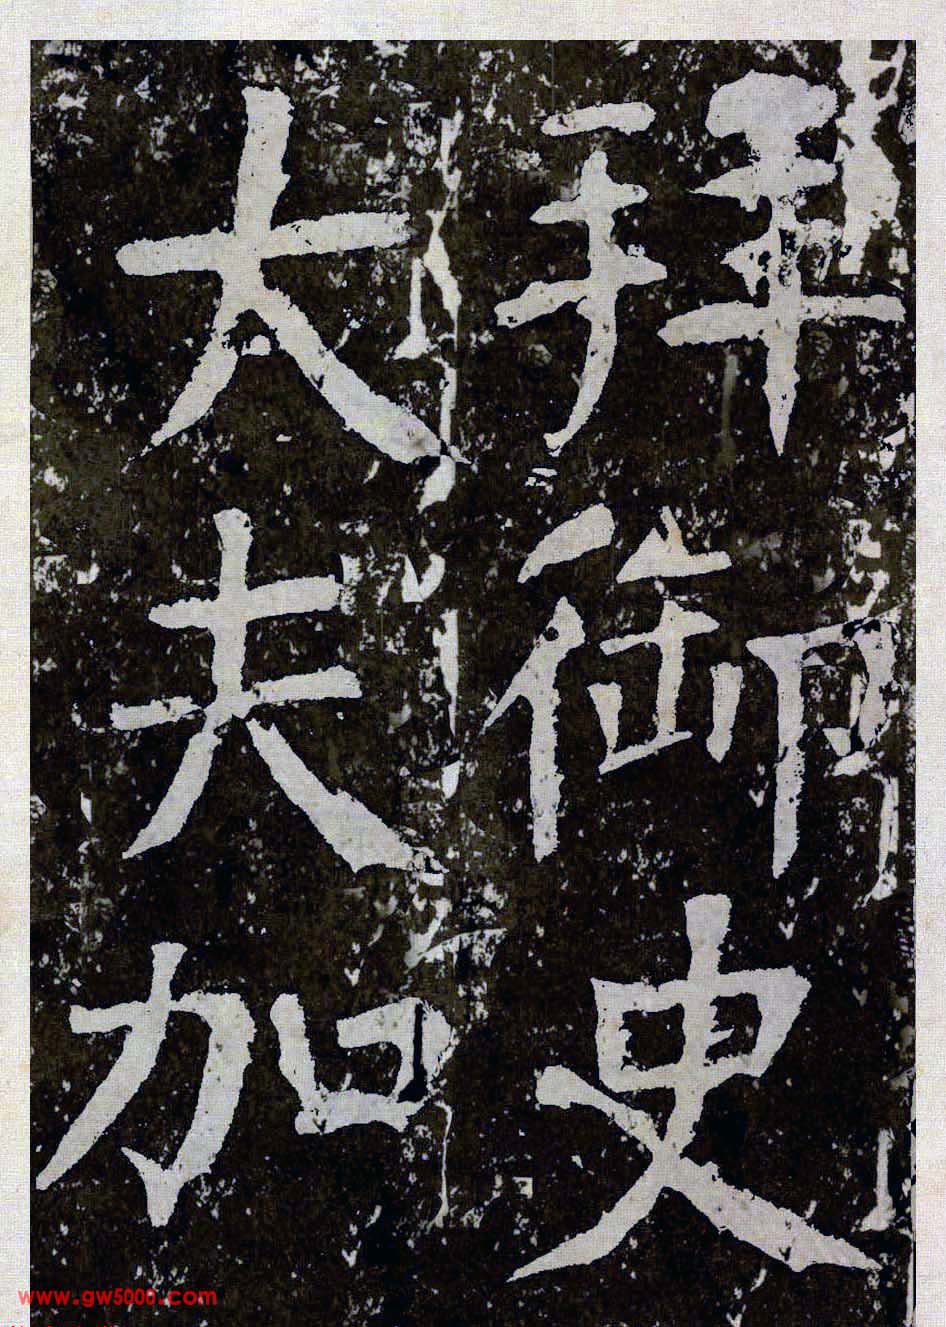 拜御史
大夫加
www.gw5000.com